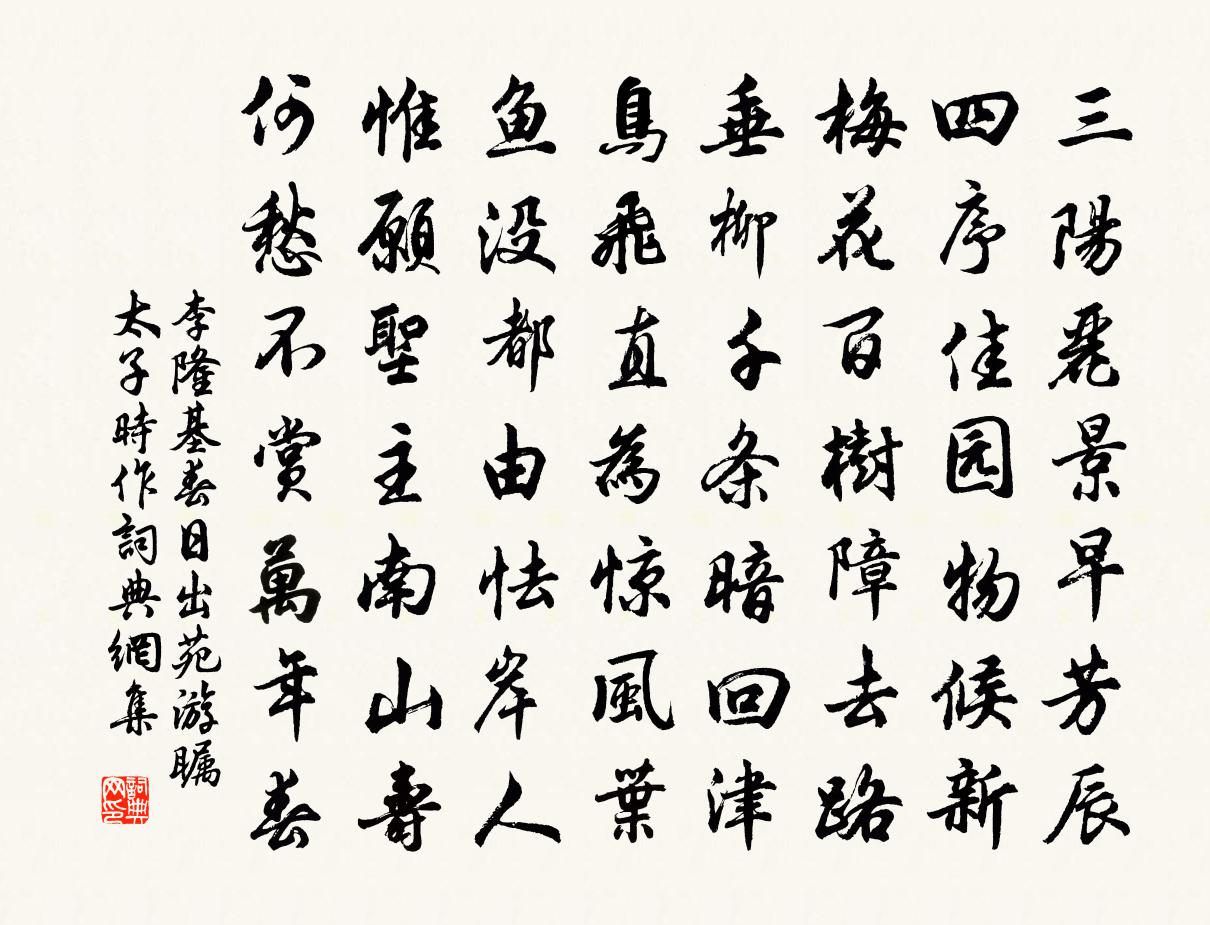 三陽麗景早芳辰
四序佳园物候新
梅花百樹障去路
垂柳千条暗回津
鳥飛直為惊風葉
魚没都由怯岸人
惟願聖主南山壽
何愁不賞萬年春
李隆基春日出苑游瞩
太子時作詞典網集
詞典网印